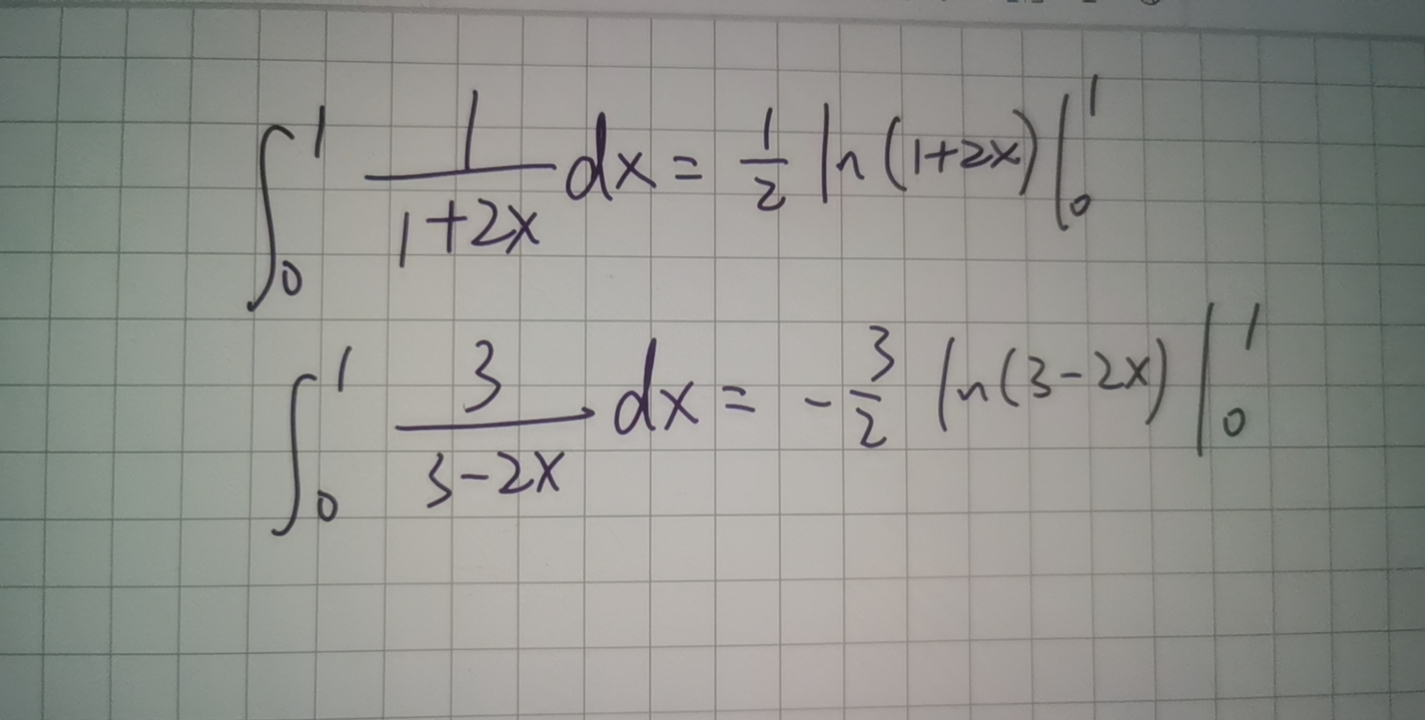 ∫₀¹ 1/(1+2x) dx = 1/2 ln(1+2x)|₀¹
∫₀¹ 3/(3-2x) dx = -3/2 ln(3-2x)|₀¹